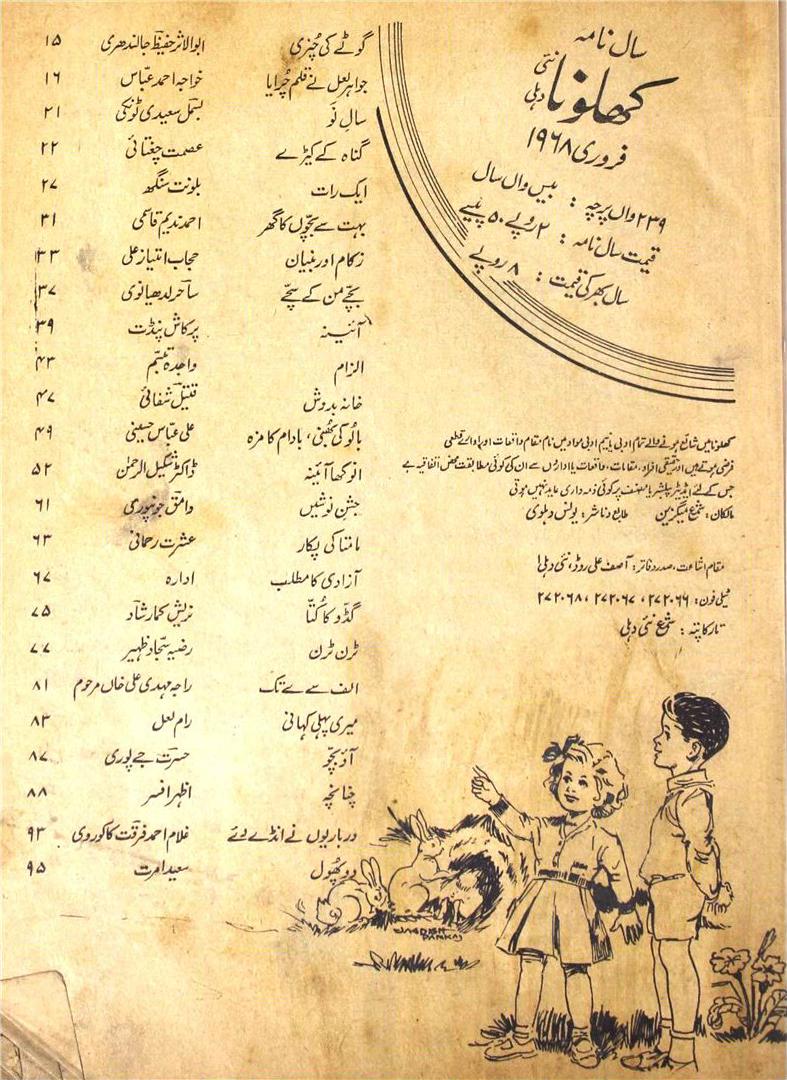 سال نامہ
کھلونا نئی دہلی
فروری ۱۹۶۸
۲۳۹ واں پرچہ : بیس واں سال
قیمت سال نامہ : ۲ روپے ۵۰ پیسے
سال بھر کی قیمت : ۸ روپے
کھلونا میں شائع ہونے والے تمام ادبی نیم ادبی مواد میں نام، مقام، واقعات اور ادارے قطعی
فرضی ہوتے ہیں اور حقیقی افراد، مقامات، واقعات یا اداروں سے ان کی کوئی مطابقت محض اتفاقیہ ہے
جس کے لئے ایڈیٹر، پبلشر یا مصنف پر کوئی ذمہ داری عاید نہیں ہوتی
مالکان : شمع میگزین طابع و ناشر : یونس دہلوی
مقام اشاعت، صدر دفاتر : آصف علی روڈ، نئی دہلی ۱
ٹیلی فون : ۲۷۲۰۶۶ ، ۲۷۲۰۶۷ ، ۲۷۲۰۶۸
تار کا پتہ : شمع نئی دہلی
گوٹے کی چُنری ابوالاثر حفیظؔ جالندھری ۱۵
جواہر لعل نے قلم چُرایا خواجہ احمد عبّاس ۱۶
سالِ نَو بسملؔ سعیدی ٹونکی ۲۱
گناہ کے کیڑے عصمت چغتائی ۲۲
ایک رات بلونت سنگھ ۲۷
بہت سے بچّوں کا گھر احمد ندیم قاسمی ۳۱
زکام اور بنیان حجاب امتیاز علی ۳۳
بچّے من کے سچّے ساحرؔ لدھیانوی ۳۷
آئینہ پرکاش پنڈت ۳۹
الزام واجدہ تبسّم ۴۳
خانہ بدوش قتیلؔ شفائی ۴۷
بالُو کی بھُنی، بادام کا مزہ علی عبّاس حسینی ۴۹
انوکھا آئینہ ڈاکٹر شکیل الرحمٰن ۵۲
جشنِ نوشیں وامقؔ جونپوری ۶۱
مامتا کی پکار عشرت رحمانی ۶۳
آزادی کا مطلب ادارہ ۶۷
گڈّو کا کُتّا نریش کمار شادؔ ۷۵
ٹرن ٹرن رضیہ سجّاد ظہیر ۷۷
الف سے ے تک راجہ مہدی علی خاں مرحوم ۸۱
میری پہلی کہانی رام لعل ۸۳
آؤ بچّو حسرتؔ جے پوری ۸۷
چناںچہ اظہر افسر ۸۸
درباریوں نے انڈے دئے غلام احمد فرقتؔ کاکوروی ۹۳
دو پھُول سعید امرت ۹۵
JAGDISH PANKAJ